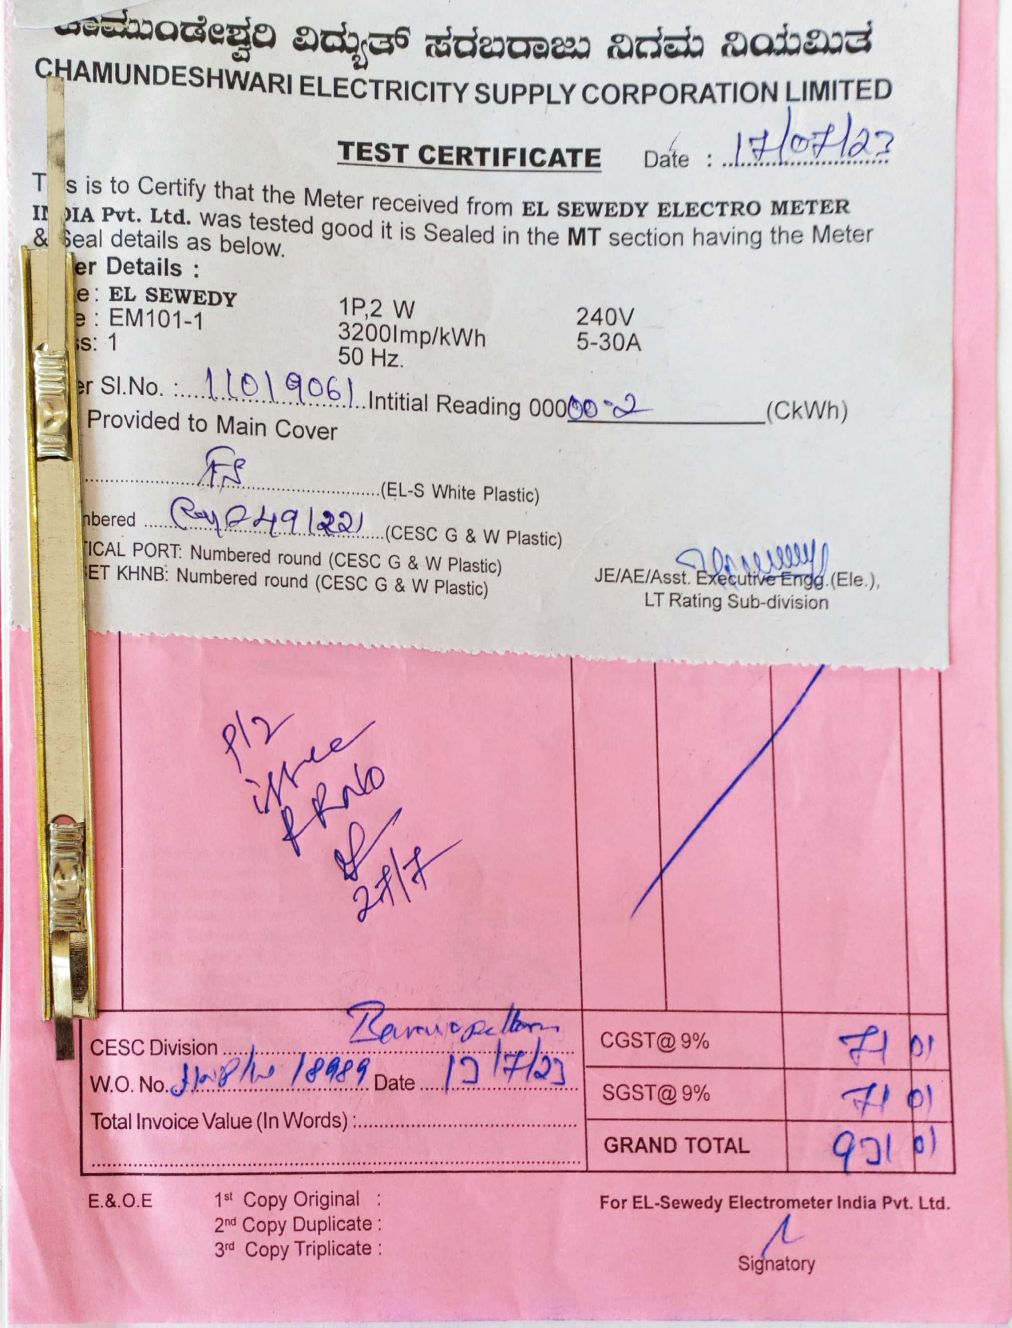 ಚಾಮುಂಡೇಶ್ವರಿ ವಿದ್ಯುತ್ ಸರಬರಾಜು ನಿಗಮ ನಿಯಮಿತ
CHAMUNDESHWARI ELECTRICITY SUPPLY CORPORATION LIMITED
TEST CERTIFICATE Date : 17/07/23
T s is to Certify that the Meter received from EL SEWEDY ELECTRO METER
IN DIA Pvt. Ltd. was tested good it is Sealed in the MT section having the Meter
& Seal details as below.
er Details :
e : EL SEWEDY 1P,2 W 240V
e : EM101-1 3200Imp/kWh 5-30A
ss: 1 50 Hz.
er Sl.No. : 11019061 Intitial Reading 00000-2 (CkWh)
Provided to Main Cover
FS (EL-S White Plastic)
nbered (CESC G & W Plastic)
ICAL PORT: Numbered round (CESC G & W Plastic)
ET KHNB: Numbered round (CESC G & W Plastic)
JE/AE/Asst. Executive Engg.(Ele.),
LT Rating Sub-division
P/2
issue
RRNo
27/7
CESC Division
W.O. No. 18989 Date /7/23
Total Invoice Value (In Words) :
CGST@ 9% 71 01
SGST@ 9% 71 01
GRAND TOTAL 931 01
E.&.O.E
1st Copy Original :
2nd Copy Duplicate :
3rd Copy Triplicate :
For EL-Sewedy Electrometer India Pvt. Ltd.
Signatory